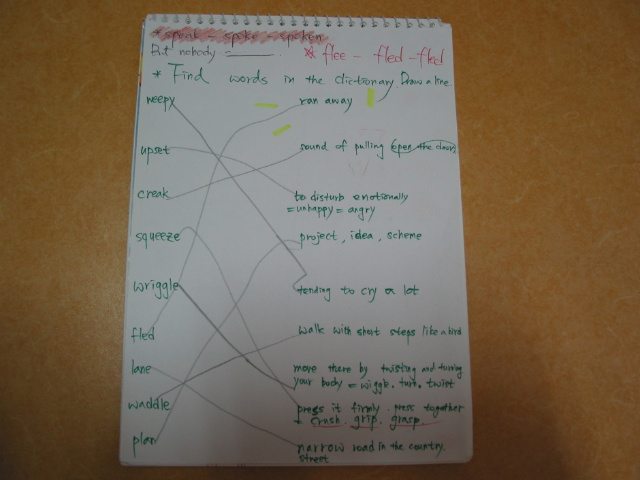 * speak - spoke - spoken
But nobody =
* flee - fled - fled
* Find words in the dictionary. Draw a line.
weepy
ran away
upset
sound of pulling (open the door)
creak
to disturb emotionally
= unhappy = angry
squeeze
project, idea, scheme
wriggle
tending to cry a lot
fled
walk with short steps like a bird
lane
move there by twisting and turing
your body = wiggle. turn. twist
waddle
press it firmly. press together
= crush. grip. grasp.
plan
narrow road in the country.
street